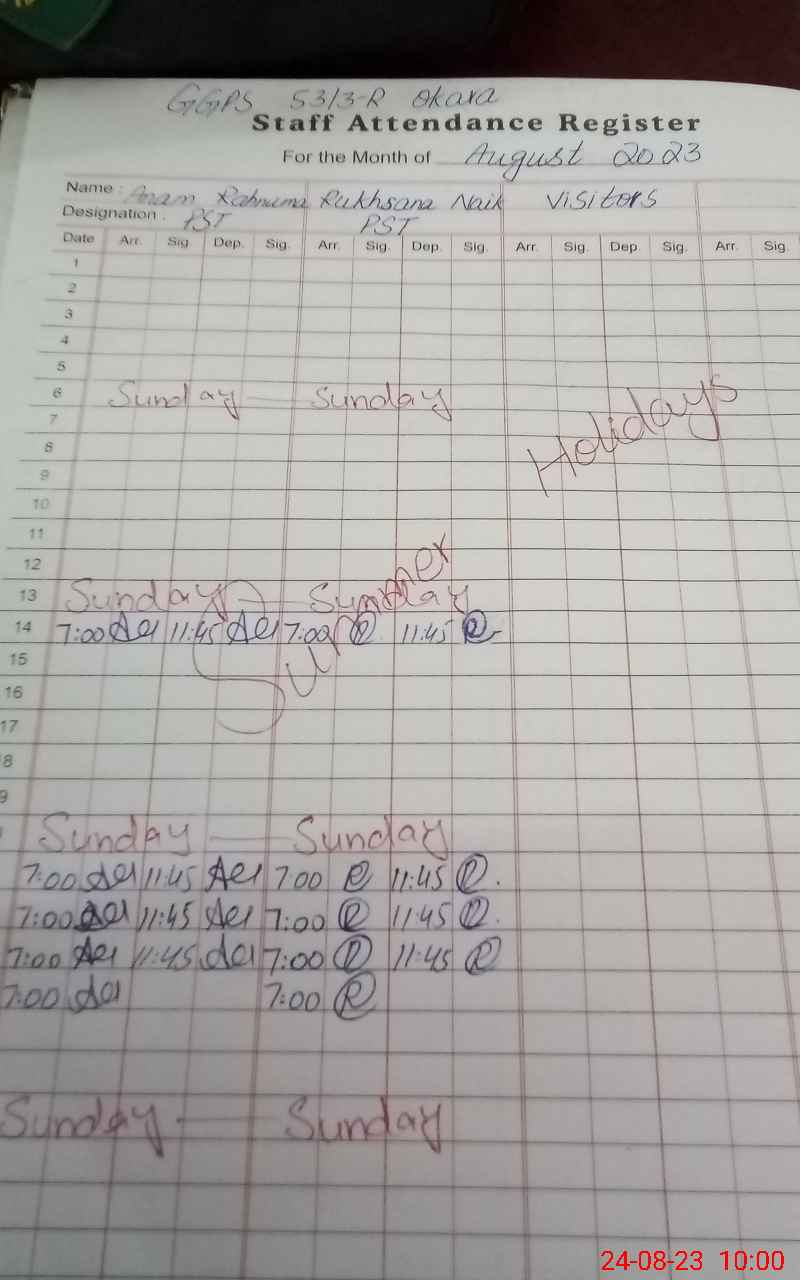 GGPS 53/3-R Okara
Staff Attendance Register
For the Month of August 2023
Name : Anam Rahnuma Rukhsana Naik Visitors
Designation : PST PST
Date Arr. Sig. Dep. Sig. Arr. Sig. Dep. Sig. Arr. Sig. Dep. Sig. Arr. Sig.
1
2
3
4
5
6 Sunday Sunday
7
Holidays
8
9
10
11
12
Summer
13 Sunday Sunday
14 7:00 11:45 7:00 11:45
15
16
17
8
9
Sunday Sunday
7:00 11:45 7:00 11:45
7:00 11:45 7:00 11:45
7:00 11:45 7:00 11:45
7:00 7:00
Sunday Sunday
24-08-23 10:00